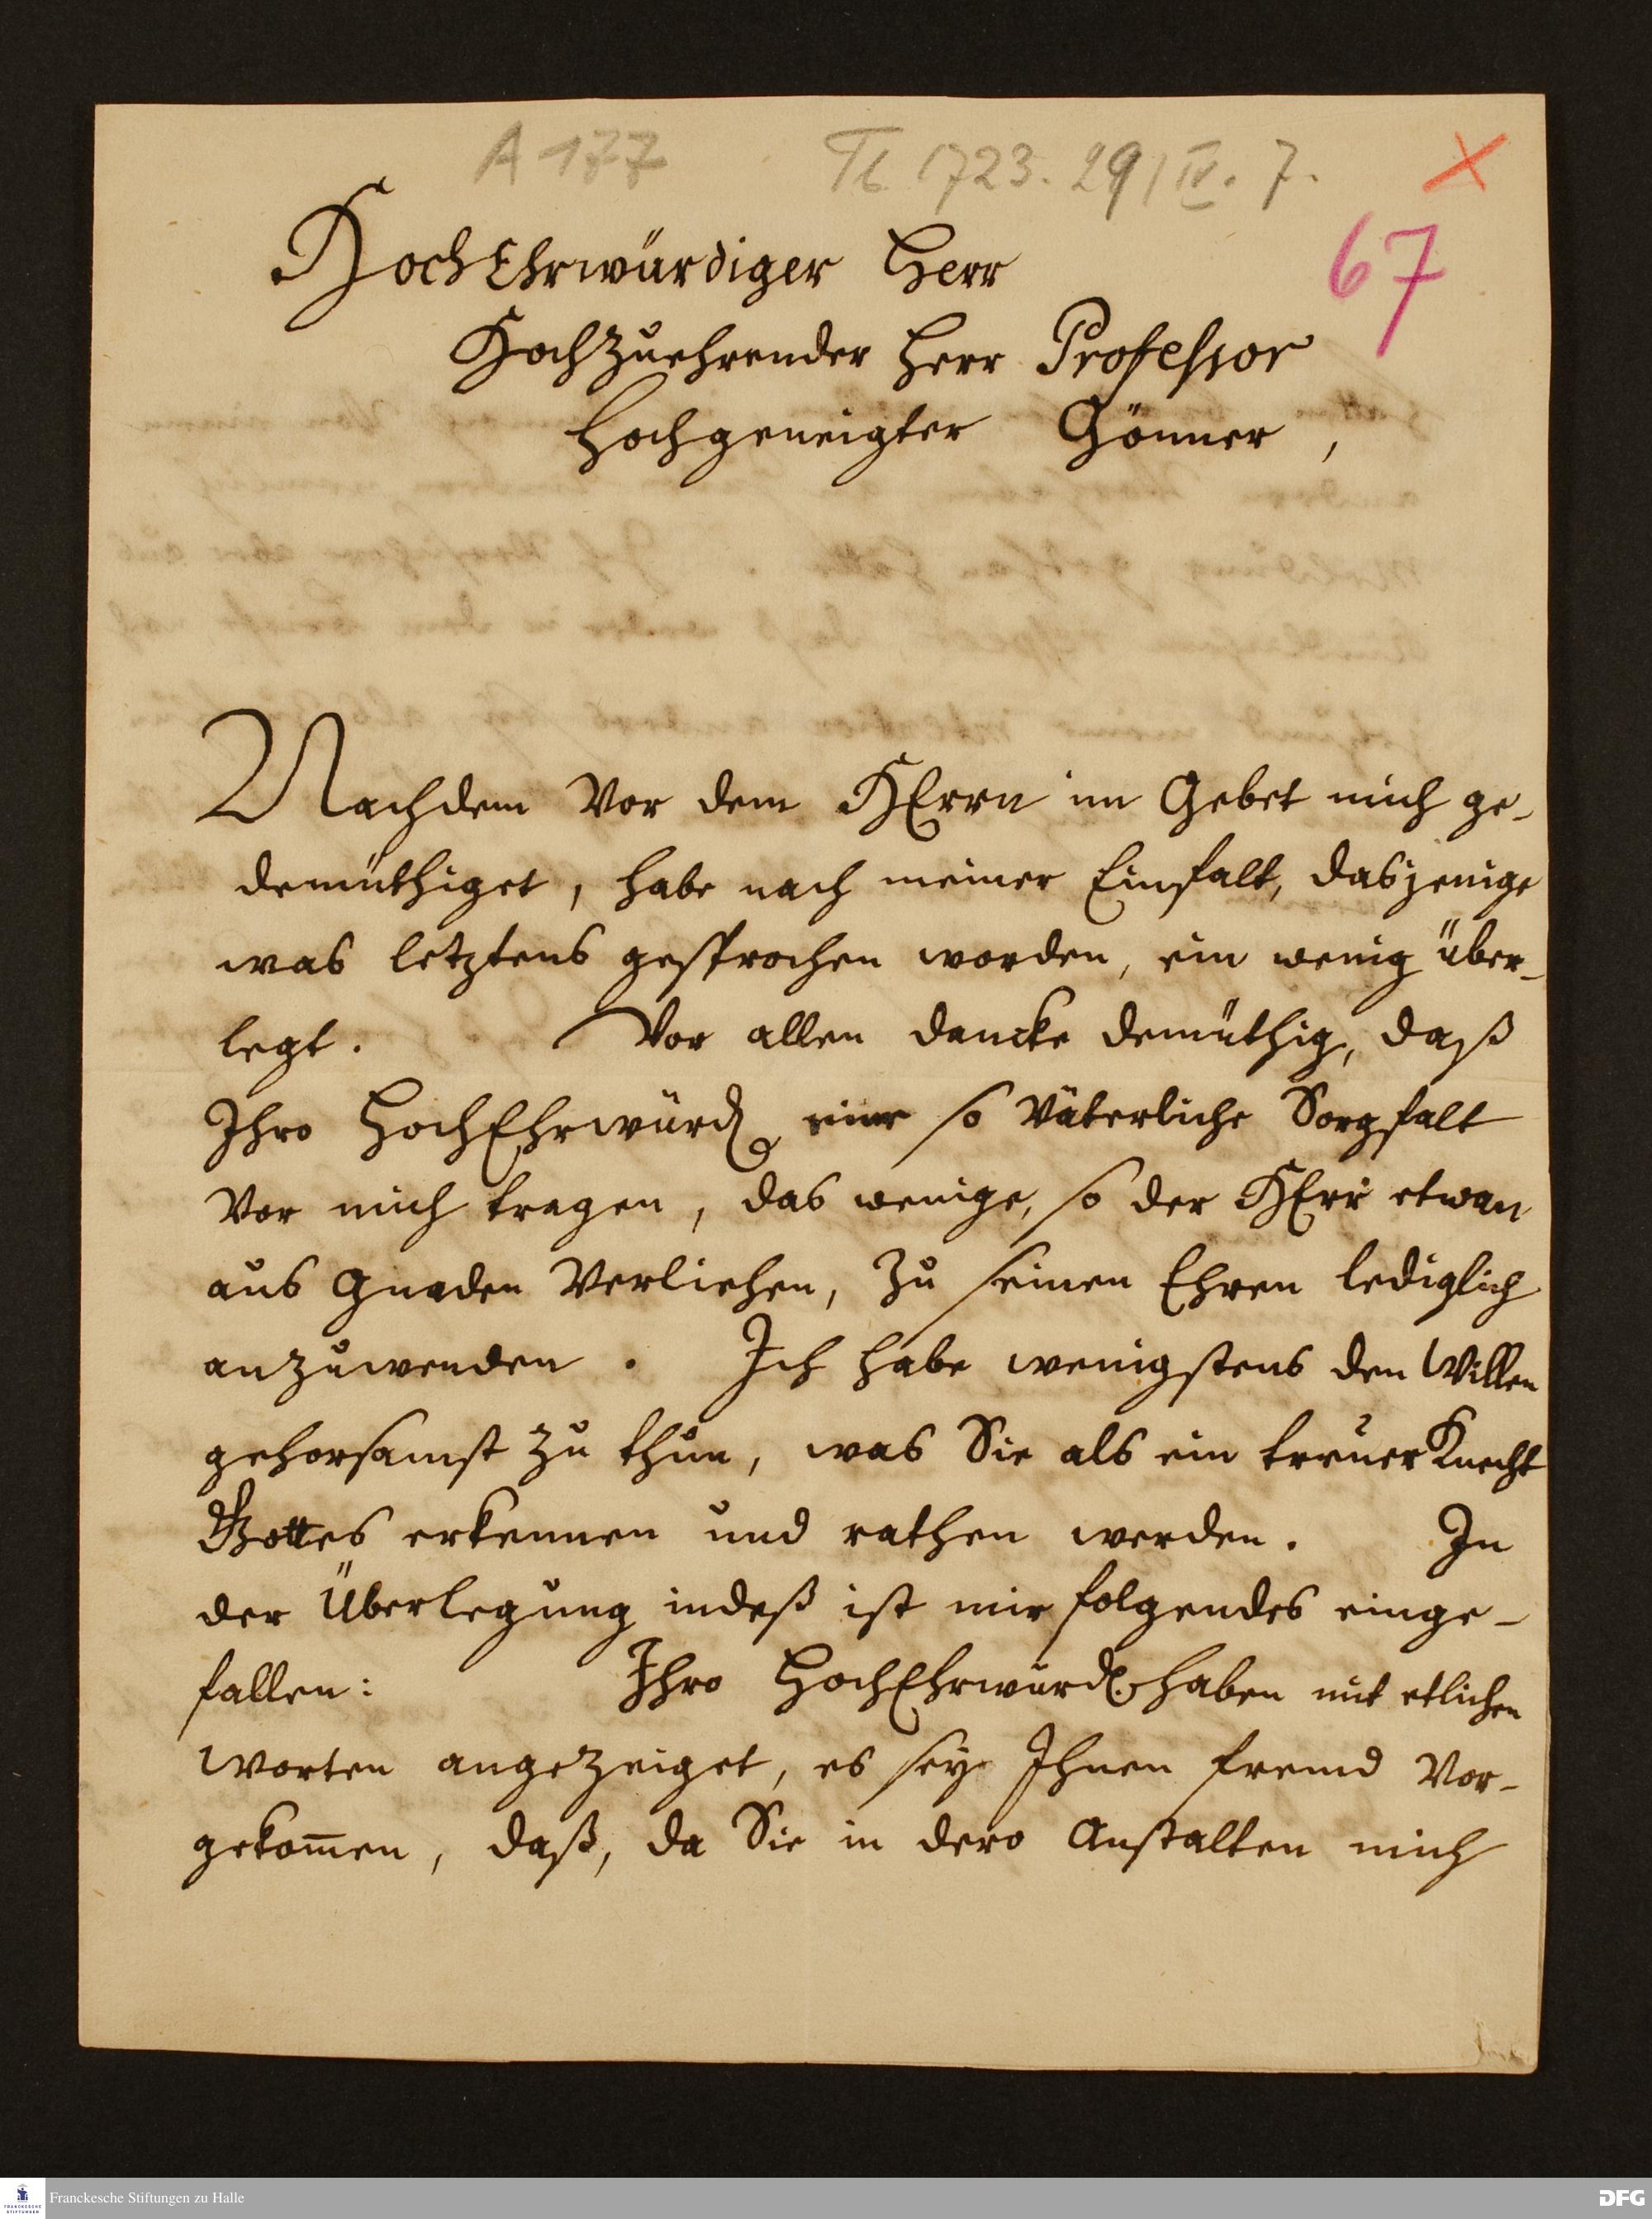 A 177 Tb 1723. 29/IV. 7.
67
HochEhrwürdiger Herr
Hochzuehrender Herr Professor
Hochgeneigter Gönner,
Nachdem vor dem HErrn im Gebet mich ge-
demüthiget, habe nach meiner Einfalt, dasjenige
was letztens gesprochen worden, ein wenig über-
legt. Vor allen dancke demüthig, daß
Ihro HochEhrwürd. eine so väterliche Sorgfalt
vor mich tragen, das wenige, so der HErr etwan
aus Gnaden verliehen, zu seinen Ehren lediglich
anzuwenden. Ich habe wenigstens den Willen
gehorsamst zu thun, was Sie als ein treuer Knecht
Gottes erkennen und rathen werden. In
der Überlegung indeß ist mir folgendes einge-
fallen: Ihro HochEhrwürd. haben mit etlichen
Worten angezeiget, es sey Ihnen fremd vor-
gekom̄en, daß, da Sie in dero Anstalten mich
Franckesche Stiftungen zu Halle
FRANCKESCHE
STIFTUNGEN
DFG